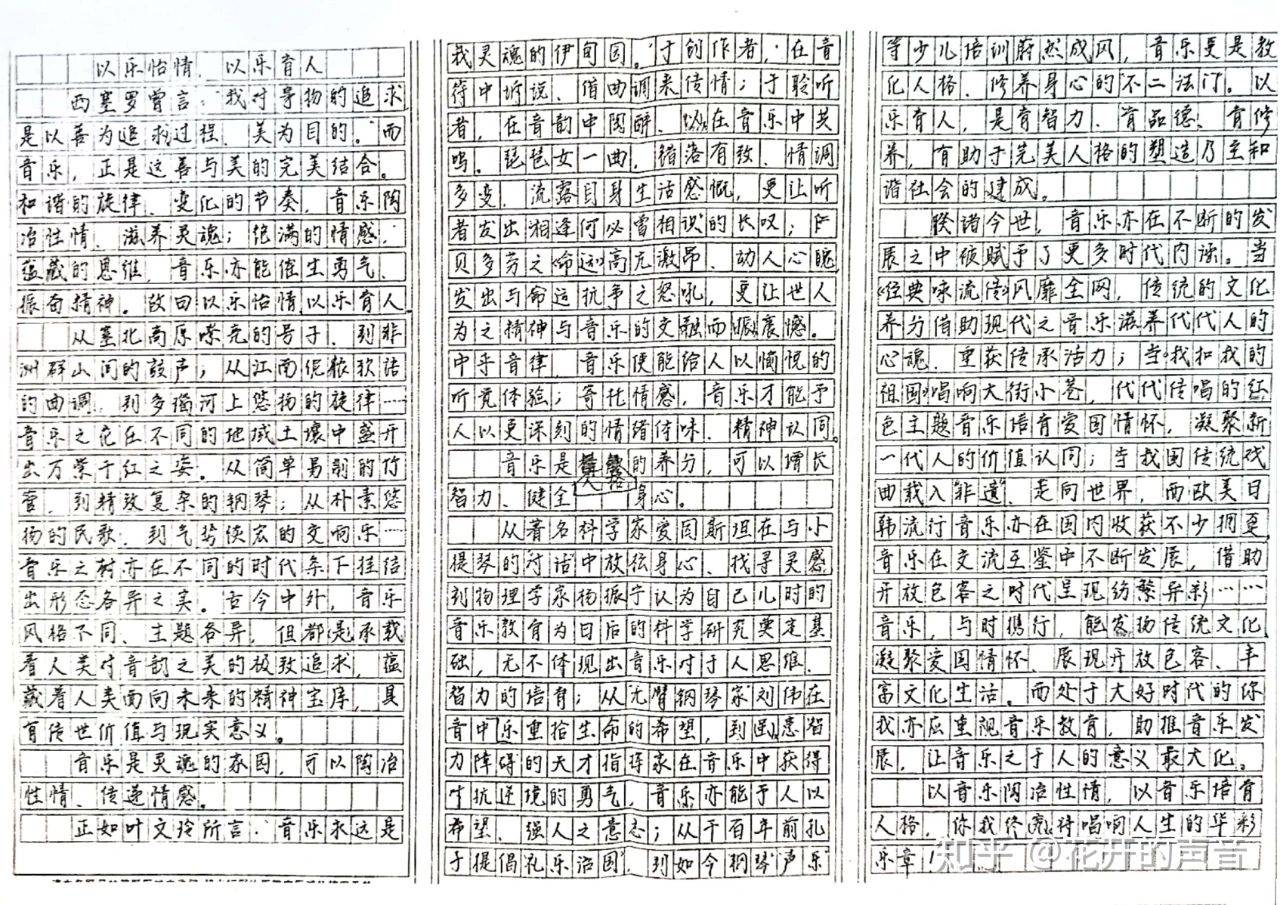 以乐怡情,以乐育人
西塞罗曾言:“我对事物的追求
是以善为追求过程,美为目的。”而
音乐,正是这善与美的完美结合。
和谐的旋律、变化的节奏,音乐陶
冶性情、滋养灵魂;饱满的情感,
蕴藏的思维,音乐亦能催生勇气、
振奋精神。故曰以乐怡情,以乐育人
从塞北高原嘹亮的号子,到非
洲群山间的鼓声;从江南侬软语
的曲调,到多瑙河上悠扬的旋律……
音乐之花在不同的地域土壤中盛开
出万紫千红之姿。从简单易制的竹
管,到精致复杂的钢琴;从朴素悠
扬的民歌,到气势恢宏的交响乐……
音乐之树亦在不同的时代条下挂结
出形态各异之美。古今中外,音乐
风格不同、主题各异,但都是承载
着人类对音韵之美的极致追求,蕴
藏着人类面向未来的精神宝库,具
有传世价值与现实意义。
音乐是灵魂的家园,可以陶冶
性情、传递情感。
正如叶文玲所言:“音乐永远是
我灵魂的伊甸园。”于创作者,在音
符中诉说、借曲调来传情;于聆听
者,在音韵中陶醉、以在音乐中共
鸣。琵琶女一曲,错落有致、情调
多变,流露自身生活感慨,更让听
者发出“相逢何必曾相识”的长叹;
贝多芬之《命运》高亢激昂、动人心魄
发出与命运抗争之怒吼,更让世人
为之精神与音乐的交融而振震憾。
中乎音律,音乐便能给人以愉悦的
听觉体验;寄托情感,音乐才能予
人以更深刻的情绪体味、精神认同。
音乐是人格的养分,可以增长
智力、健全身心。
从著名科学家爱因斯坦在与小
提琴的对话中放松身心、找寻灵感
到物理学家杨振宁认为自己儿时的
音乐教育为日后的科学研究奠定基
础,无不体现出音乐对于人思维、
智力的培育;从无臂钢琴家刘伟在
音中乐重拾生命的希望,到患智
力障碍的天才指挥家在音乐中获得
对抗逆境的勇气,音乐亦能予人以
希望、强人之意志;从千百年前孔
子提倡礼乐治国,到如今钢琴声乐
等少儿培训蔚然成风,音乐更是教
化人格、修养身心的不二法门。以
乐育人,是育智力、育品德、育修
养,有助于完美人格的塑造乃至和
谐社会的建成。
睽诸今世,音乐亦在不断的发
展之中被赋予了更多时代内涵。当
《经典咏流传》风靡全网,传统的文化
养分借助现代之音乐滋养代代人的
心魂、重获传承活力;当《我和我的
祖国》唱响大街小巷,代代传唱的红
色主题音乐培育爱国情怀,凝聚新
一代人的价值认同;当我国传统戏
曲载入“非遗”、走向世界,而欧美日
韩流行音乐亦在国内收获不少拥趸
音乐在交流互鉴中不断发展,借助
开放包容之时代呈现纷繁异彩……
音乐,与时携行,能发扬传统文化
凝聚爱国情怀、展现开放包容、丰
富文化生活。而处于大好时代的你
我亦应重视音乐教育,助推音乐发
展,让音乐之于人的意义最大化。
以音乐陶冶性情,以音乐培育
人格,你我终将唱响人生的华彩
乐章!
知乎 @花开的声音